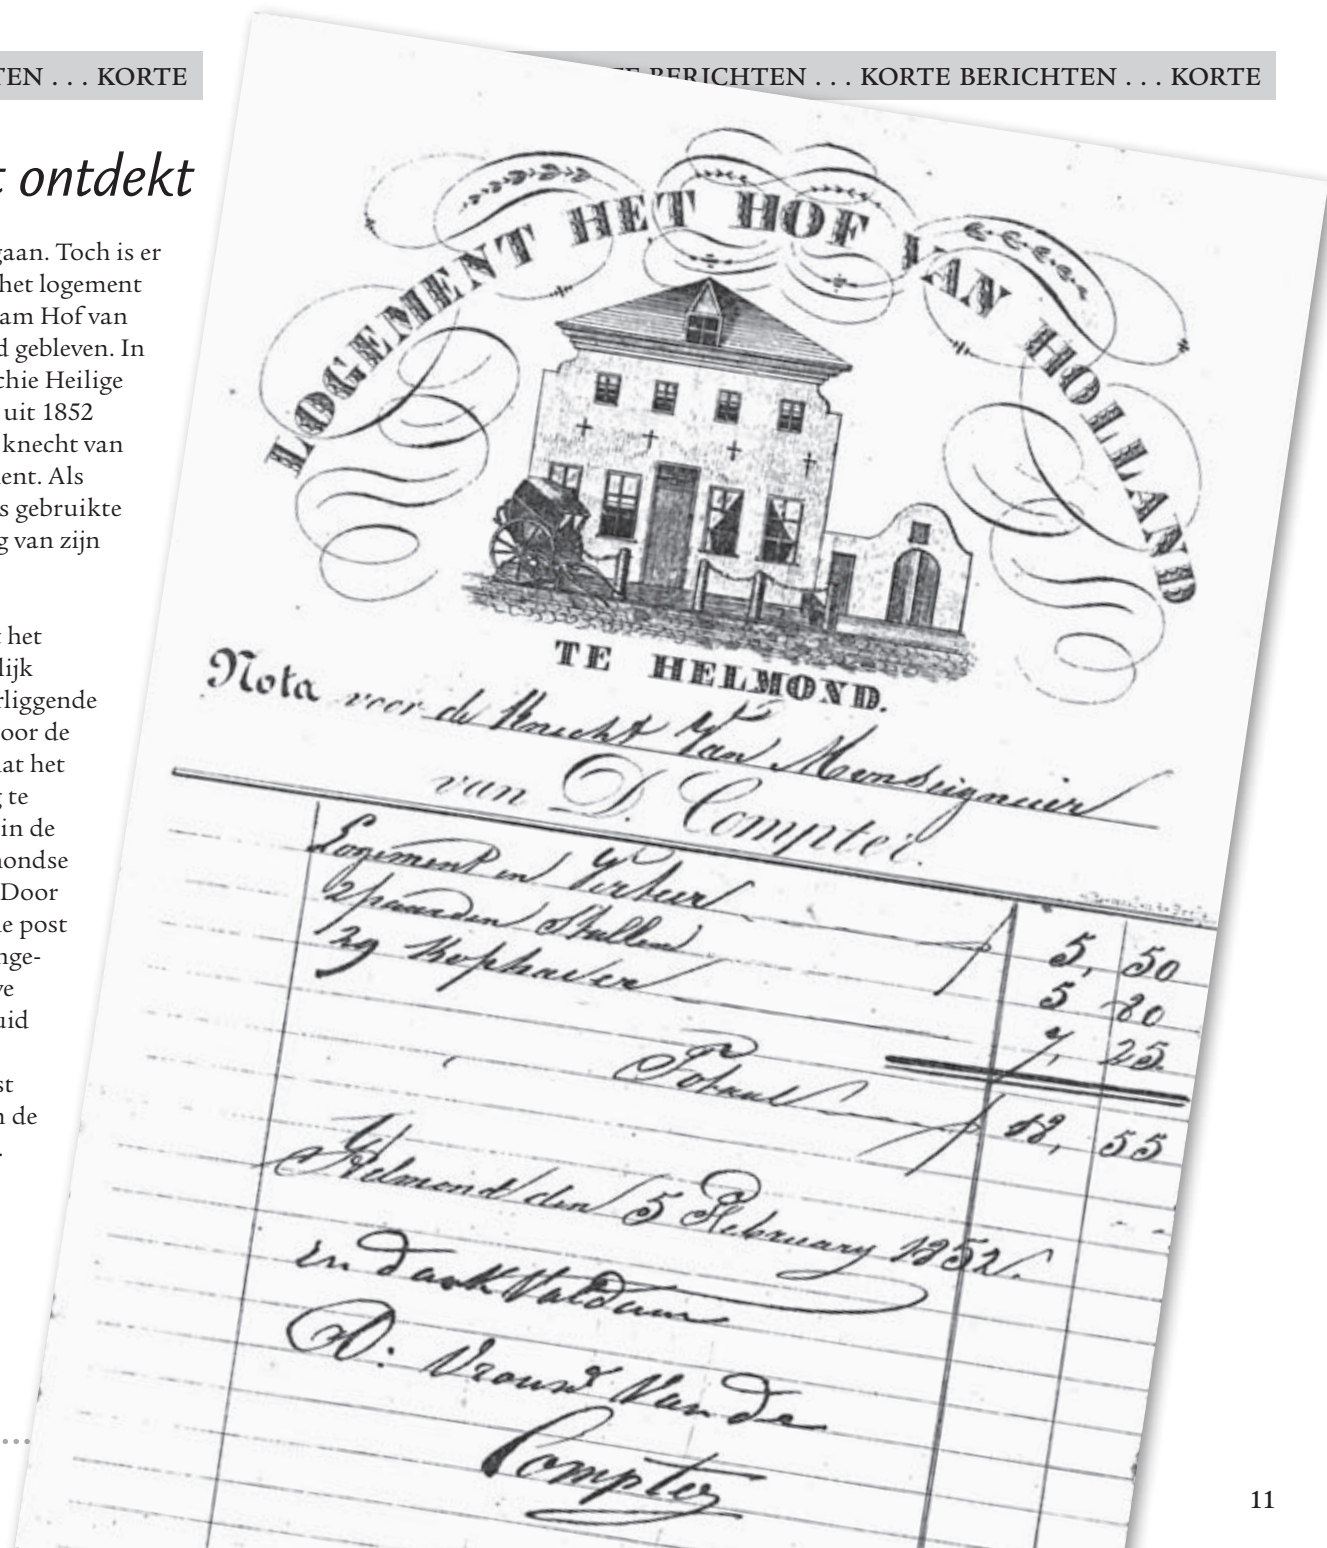 TEN . . . KORTE
BERICHTEN . . . KORTE BERICHTEN . . . KORTE
t ontdekt
gaan. Toch is er
het logement
am Hof van
d gebleven. In
chie Heilige
uit 1852
knecht van
ent. Als
s gebruikte
g van zijn
t het
lijk
rliggende
oor de
at het
g te
in de
mondse
Door
e post
nge-
ve
uid
st
n de
.
LOGEMENT HET HOF VAN HOLLAND
TE HELMOND.
Nota voor de Knecht Van Monseigneur
van D. Compter.
Logement en Verteer 5, 50
2 paarden Stallen 5 80
29 Kophaver 7, 25
Totaal 18, 55
Helmond den 5 February 1852.
en dank Voldaan
D: Vrouw Van de
Compter
11